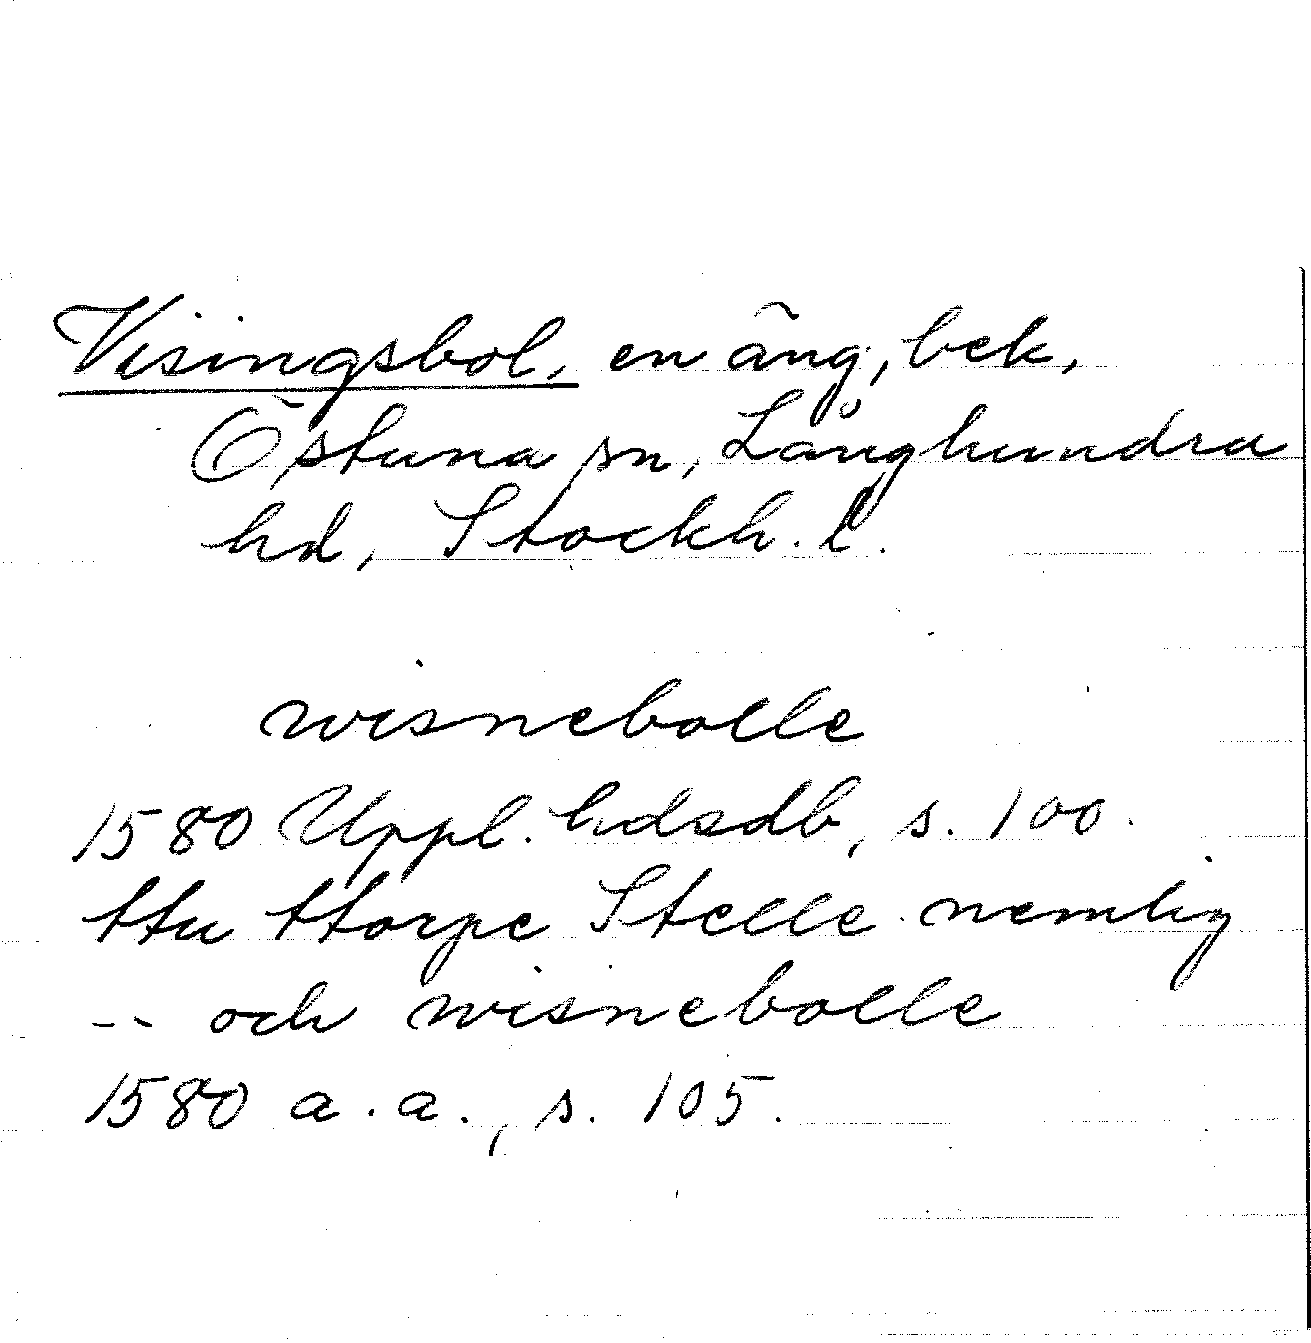 Visingsbol, en äng, bek.
Östuna sn, Långhundra
hd, Stockh. l.
wisnebolle
1580 Uppl. hdsdb, s. 100.
ttu ttorpe Stelle nemlig
-- och wisnebolle
1580 a.a., s. 105.